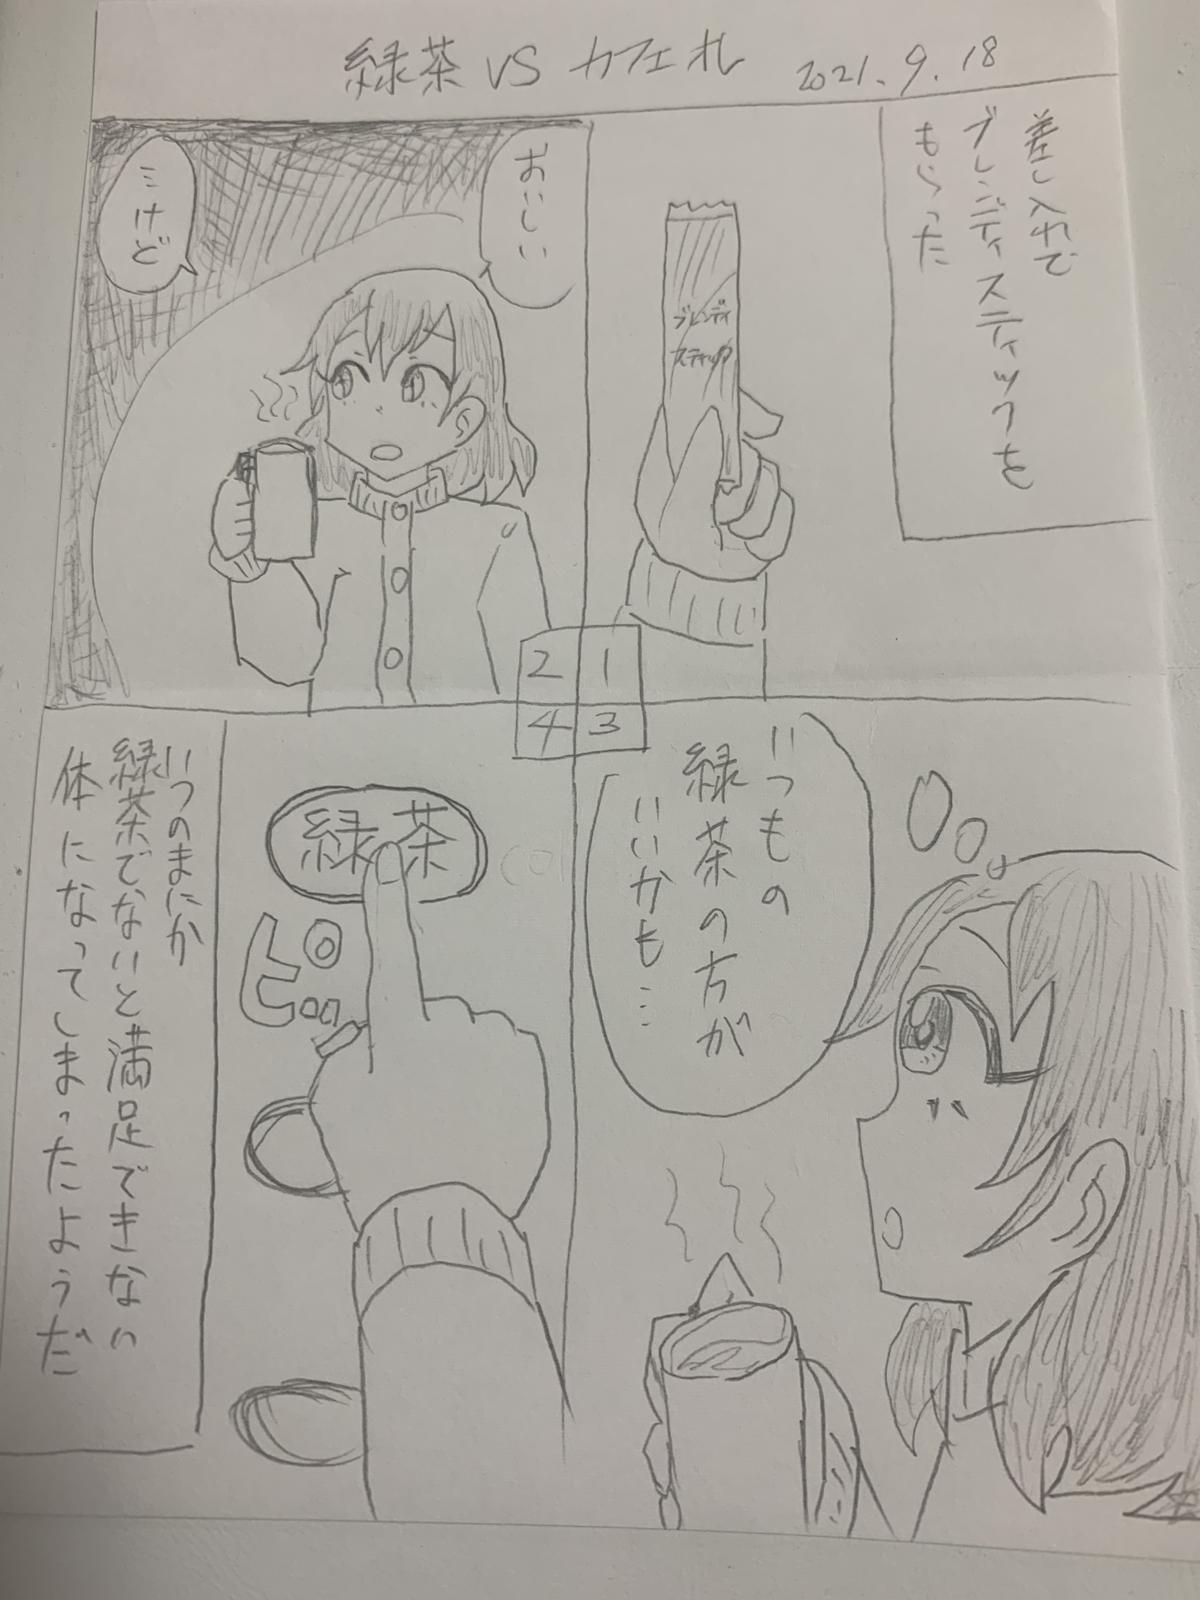 緑茶 VS カフェオレ 2021.9.18
差し入れで
ブレンディスティックを
もらった
ブレンディ
スティック
おいしい
…けど
1
2
3
4
いつもの
緑茶の方が
いいかも…
緑茶
ピッ
いつのまにか
緑茶でないと満足できない
体になってしまったようだ